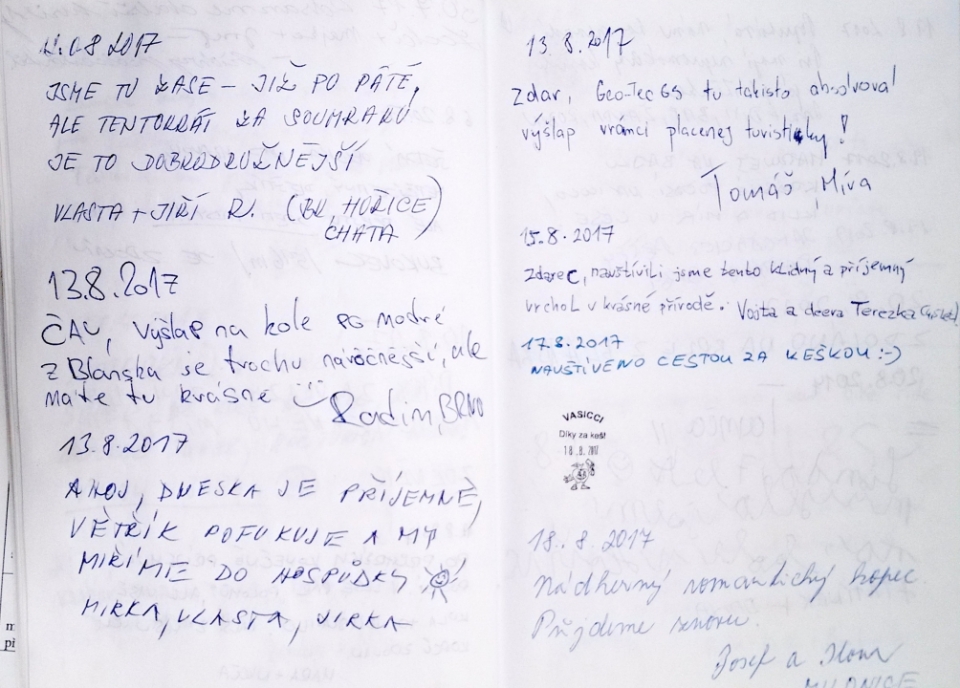 08 2017
JSME TU ZASE – JIŽ PO PÁTÉ,
ALE TENTOKRÁT ZA SOUMRAKU
JE TO DOBRODRUŽNĚJŠÍ
VLASTA + JIŘÍ R. (BL. HOŘICE)
CHATA
13.8.2017
ČAU, Výšlap na kole po modré
z Blanska se trochu náročnější, ale
máte tu krásně
Radim, BRNO
13.8.2017
AHOJ, DNESKA JE PŘÍJEMNĚ,
VĚTŘÍK POFUKUJE A MY
MIŘÍME DO HOSPŮDKY
MIRKA, VLASTA, JIRKA
13.8.2017
Zdar, Geo-Tec GS tu takisto absolvoval
výšlap vramci placenej turistiky!
Tomáš Míva
15.8.2017
Zdarec, navštívili jsme tento klidný a příjemný
vrchol v krásné přírodě. Vojta a dcera Terezka
17.8.2017
NAVŠTÍVENO CESTOU ZA KEŠKOU :-)
VASICCI
Díky za keš!
18.8.2017
18.8.2017
Nádherný romantický kopec
Přijdeme znovu.
Josef a